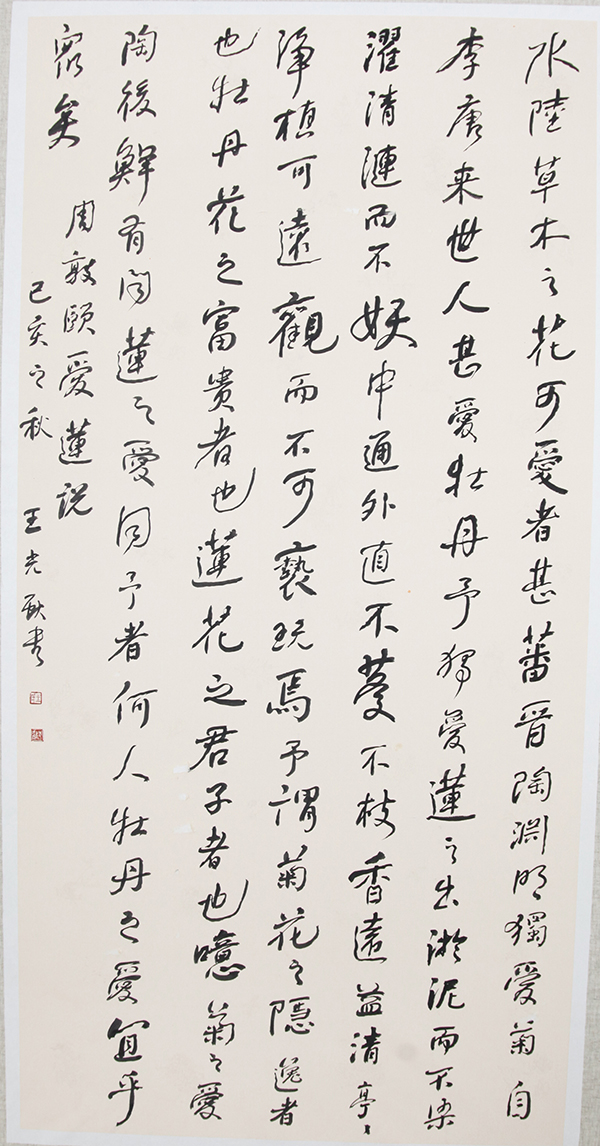 水陸草木之花可愛者甚蕃晉陶淵明獨愛菊自
李唐来世人甚愛牡丹予獨愛蓮之出淤泥而不染
濯清漣而不妖中通外直不蔓不枝香遠益清亭〻
淨植可遠觀而不可褻玩焉予謂菊花之隱逸者
也牡丹花之富貴者也蓮花之君子者也噫菊之愛
陶後鮮有聞蓮之愛同予者何人牡丹之愛宜乎
眾矣
周敦頤愛蓮説
己亥之秋 王光 書